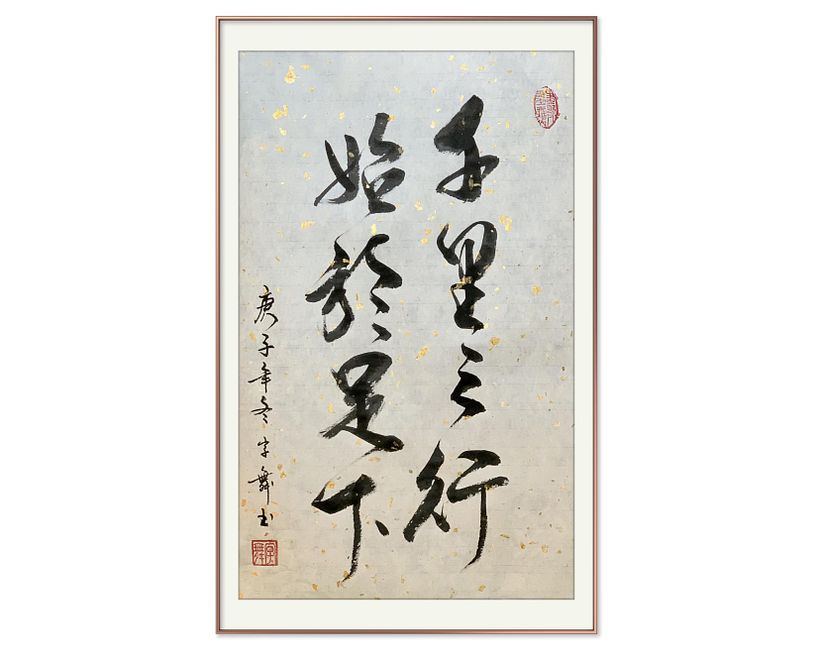 千里之行
始於足下
庚子年冬字舞书